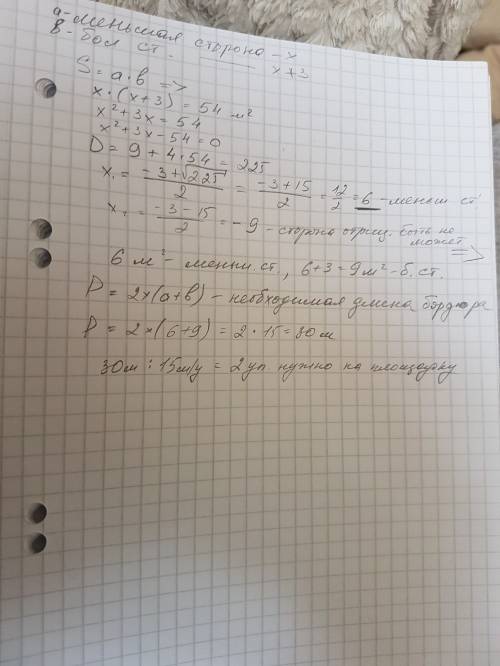 a - меньшая сторона - x
в - бол ст. x+3
S = a·в =>
x·(x+3) = 54 м²
x² + 3x = 54
x² + 3x - 54 = 0
D = 9 + 4·54 = 225
x₁ = (-3+√225)/2 = (-3+15)/2 = 12/2 = 6 - меньш ст
x₂ = (-3-15)/2 = -9 - сторона отриц. быть не
может =>
6 м² - менш. ст., 6+3=9м² - б. ст.
P = 2×(a+в) - необходимая длина бордюра
P = 2×(6+9) = 2·15 = 30 м
30м : 15м/у = 2 уп. нужно на площадку